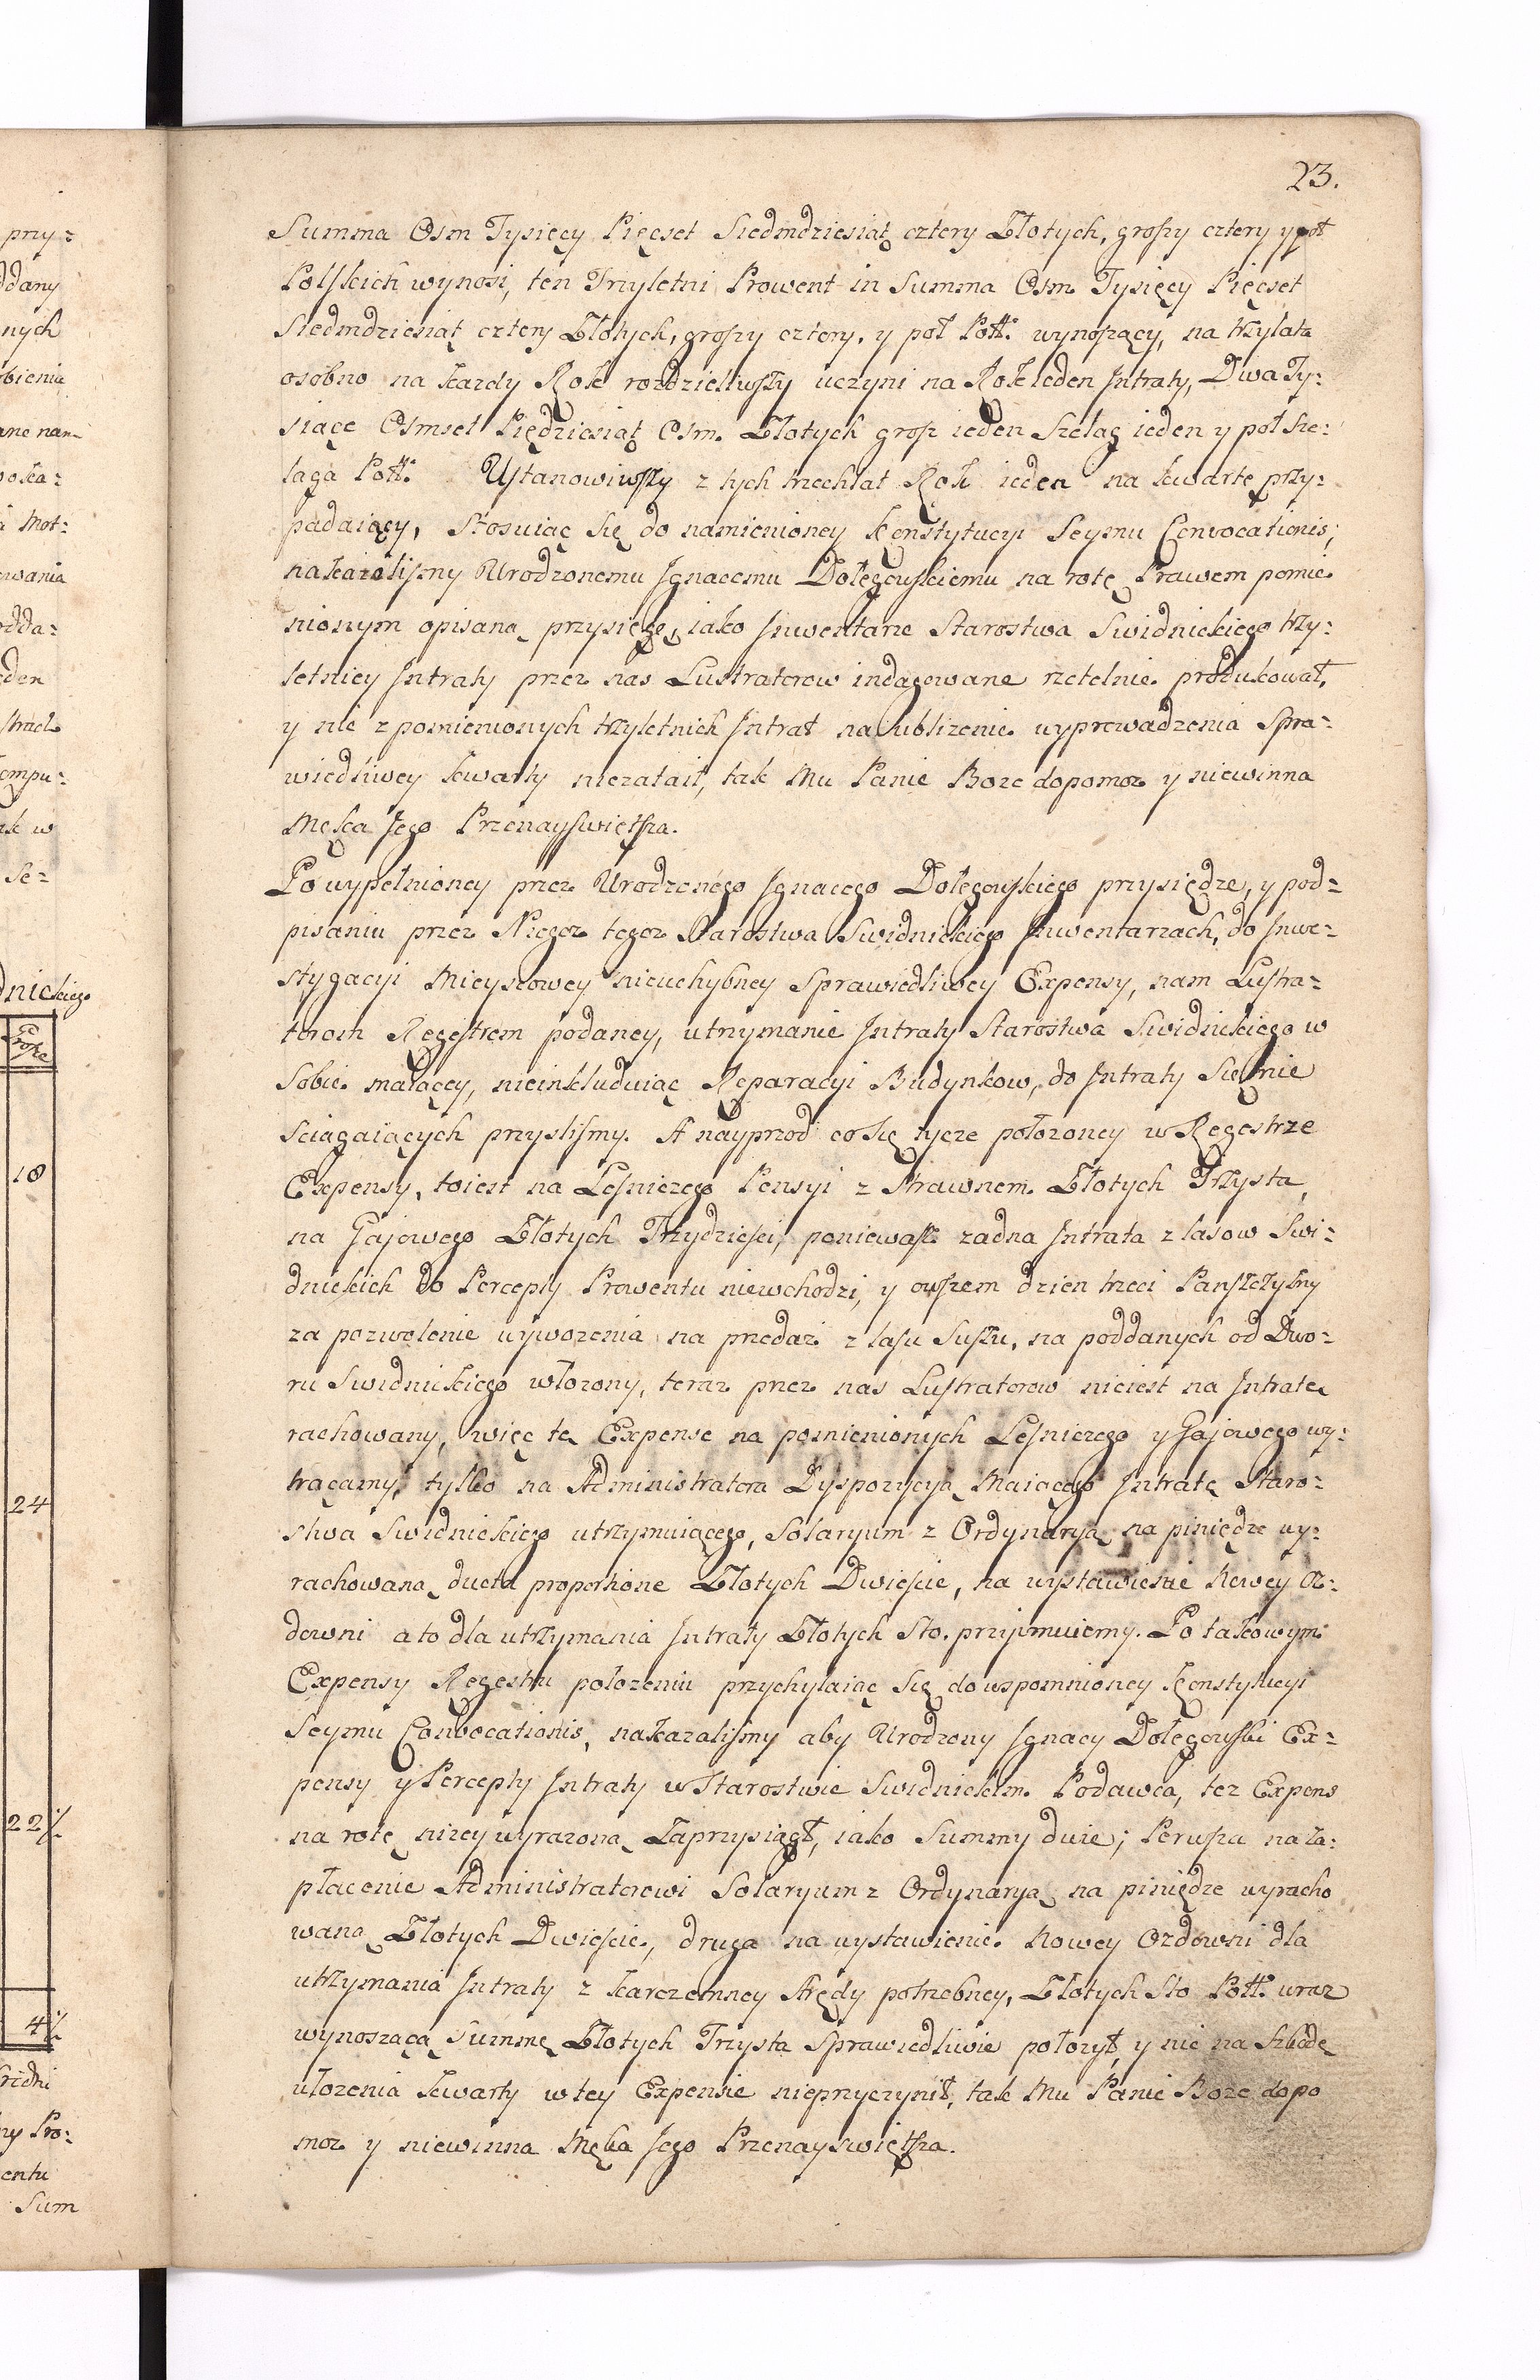 23.
Summa Osm Tysięcy Pięcset Siedmdziesiąt cztery Złotych, groszy cztery y poł
Polskich wynosi, ten Trzyletni Prowent in Summa Osm Tysięcy Pięcset
Siedmdziesiąt cztery Złotych, groszy cztery, y poł Poll: wynoszący, na trzy lata
osobno na kazdy Rok rozdzieliwszy uczyni na Rok ieden Intraty, Dwa Ty:
siące Osmset Pięcdziesiąt Osm Złotych grosz ieden Szeląg ieden y poł sze:
laga Poll: Ustanowiwszy z tych trzech lat Rok ieden na kwartę przy:
padaiący, Stosuiąc się do namienioney Konstytucyi Seymu Convocationis;
nakazalismy Urodzonemu Ignacemu Dołęgowskiemu na rotę Prawem pomie
nionym opisaną przysięgę, iako Inwentarze Starostwa Swidnickiego trzy:
letniey Intraty przez nas Lustratorow indagowane rzetelnie produkował,
y nic z pomienionych trzyletnich Intrat na ubliżenie wyprowadzenia Spra:
wiedliwey kwarty niezataił, tak Mu Panie Boze dopomoz y niewinna
Męka Jego Przenayswiętsza.
Po wypełnioney przez Urodzonego Ignacego Dołęgowskiego przysiędze, y pod:
pisaniu przez Niegoz tegoz Starostwa Swidnickiego Inwentarzach, do Inwe:
stygacyi Mieyscowey nieuchybney Sprawiedliwey Expensy, nam Lustra:
torom Regestrem podaney, utrzymanie Intraty Starostwa Swidnickiego w
Sobie maiącey, nieinkluduiąc Reparacyi Budynkow, do Intraty Się nie
sciągaiących przyslismy. A nayprzod co się tycze połozoney w Regestrze
Expensy, toiest na Lesniczego Pensyi z Strawnem Złotych Trzysta,
na Gajowego Złotych Trzydziesci, poniewasz zadna Intrata z lasow Swi:
dnickich do Percepty Prowentu niewchodzi, y owszem dzien trzeci Panszczyzny
za pozwolenie wywozenia na przedaz z lasu Suszu, na poddanych od Dwo:
ru Swidnickiego włozony, teraz przez nas Lustratorow nieiest na Intratę
rachowany, więc tę Expensę na pomienionych Lesniczego y Gajowego wy:
trącamy, tylko na Administratora Dyspozycyą Maiącego Intratę Staro:
stwa Swidnickiego utrzymuiącego, Solaryum z Ordynaryą na piniędze wy:
rachowaną ducta proportione Złotych Dwiescie, na wystawienie Nowey Oz:
downi a to dla utrzymania Intraty Złotych Sto. przyimuiemy. Po takowym
Expensy Regestru połozeniu przychylaiąc się do wspomnioney Konstytucyi
Seymu Convocationis, nakazalismy aby Urodzony Ignacy Dołęgowski Ex:
pensy y Percepty Intraty w Starostwie Swidnickim Podawca, tez Expens
na rotę nizey wyrazoną Zaprzysiągł, iako Summy dwie; Perwsza na za:
płacenie Administratorowi Solaryum z Ordynaryą na piniędze wyracho
waną Złotych Dwiescie, druga na wystawienie Nowey Ozdowni dla
utrzymania Intraty z karczemney Arędy potrzebney, Złotych Sto Poll: wraz
wynoszącą Summę Złotych Trzysta Sprawiedliwie połozył, y nic na Szkodę
ułozenia kwarty w tey Expensie nieprzyczynił, tak Mu Panie Boze dopo
moz y niewinna Męka Jego Przenayswiętsza.